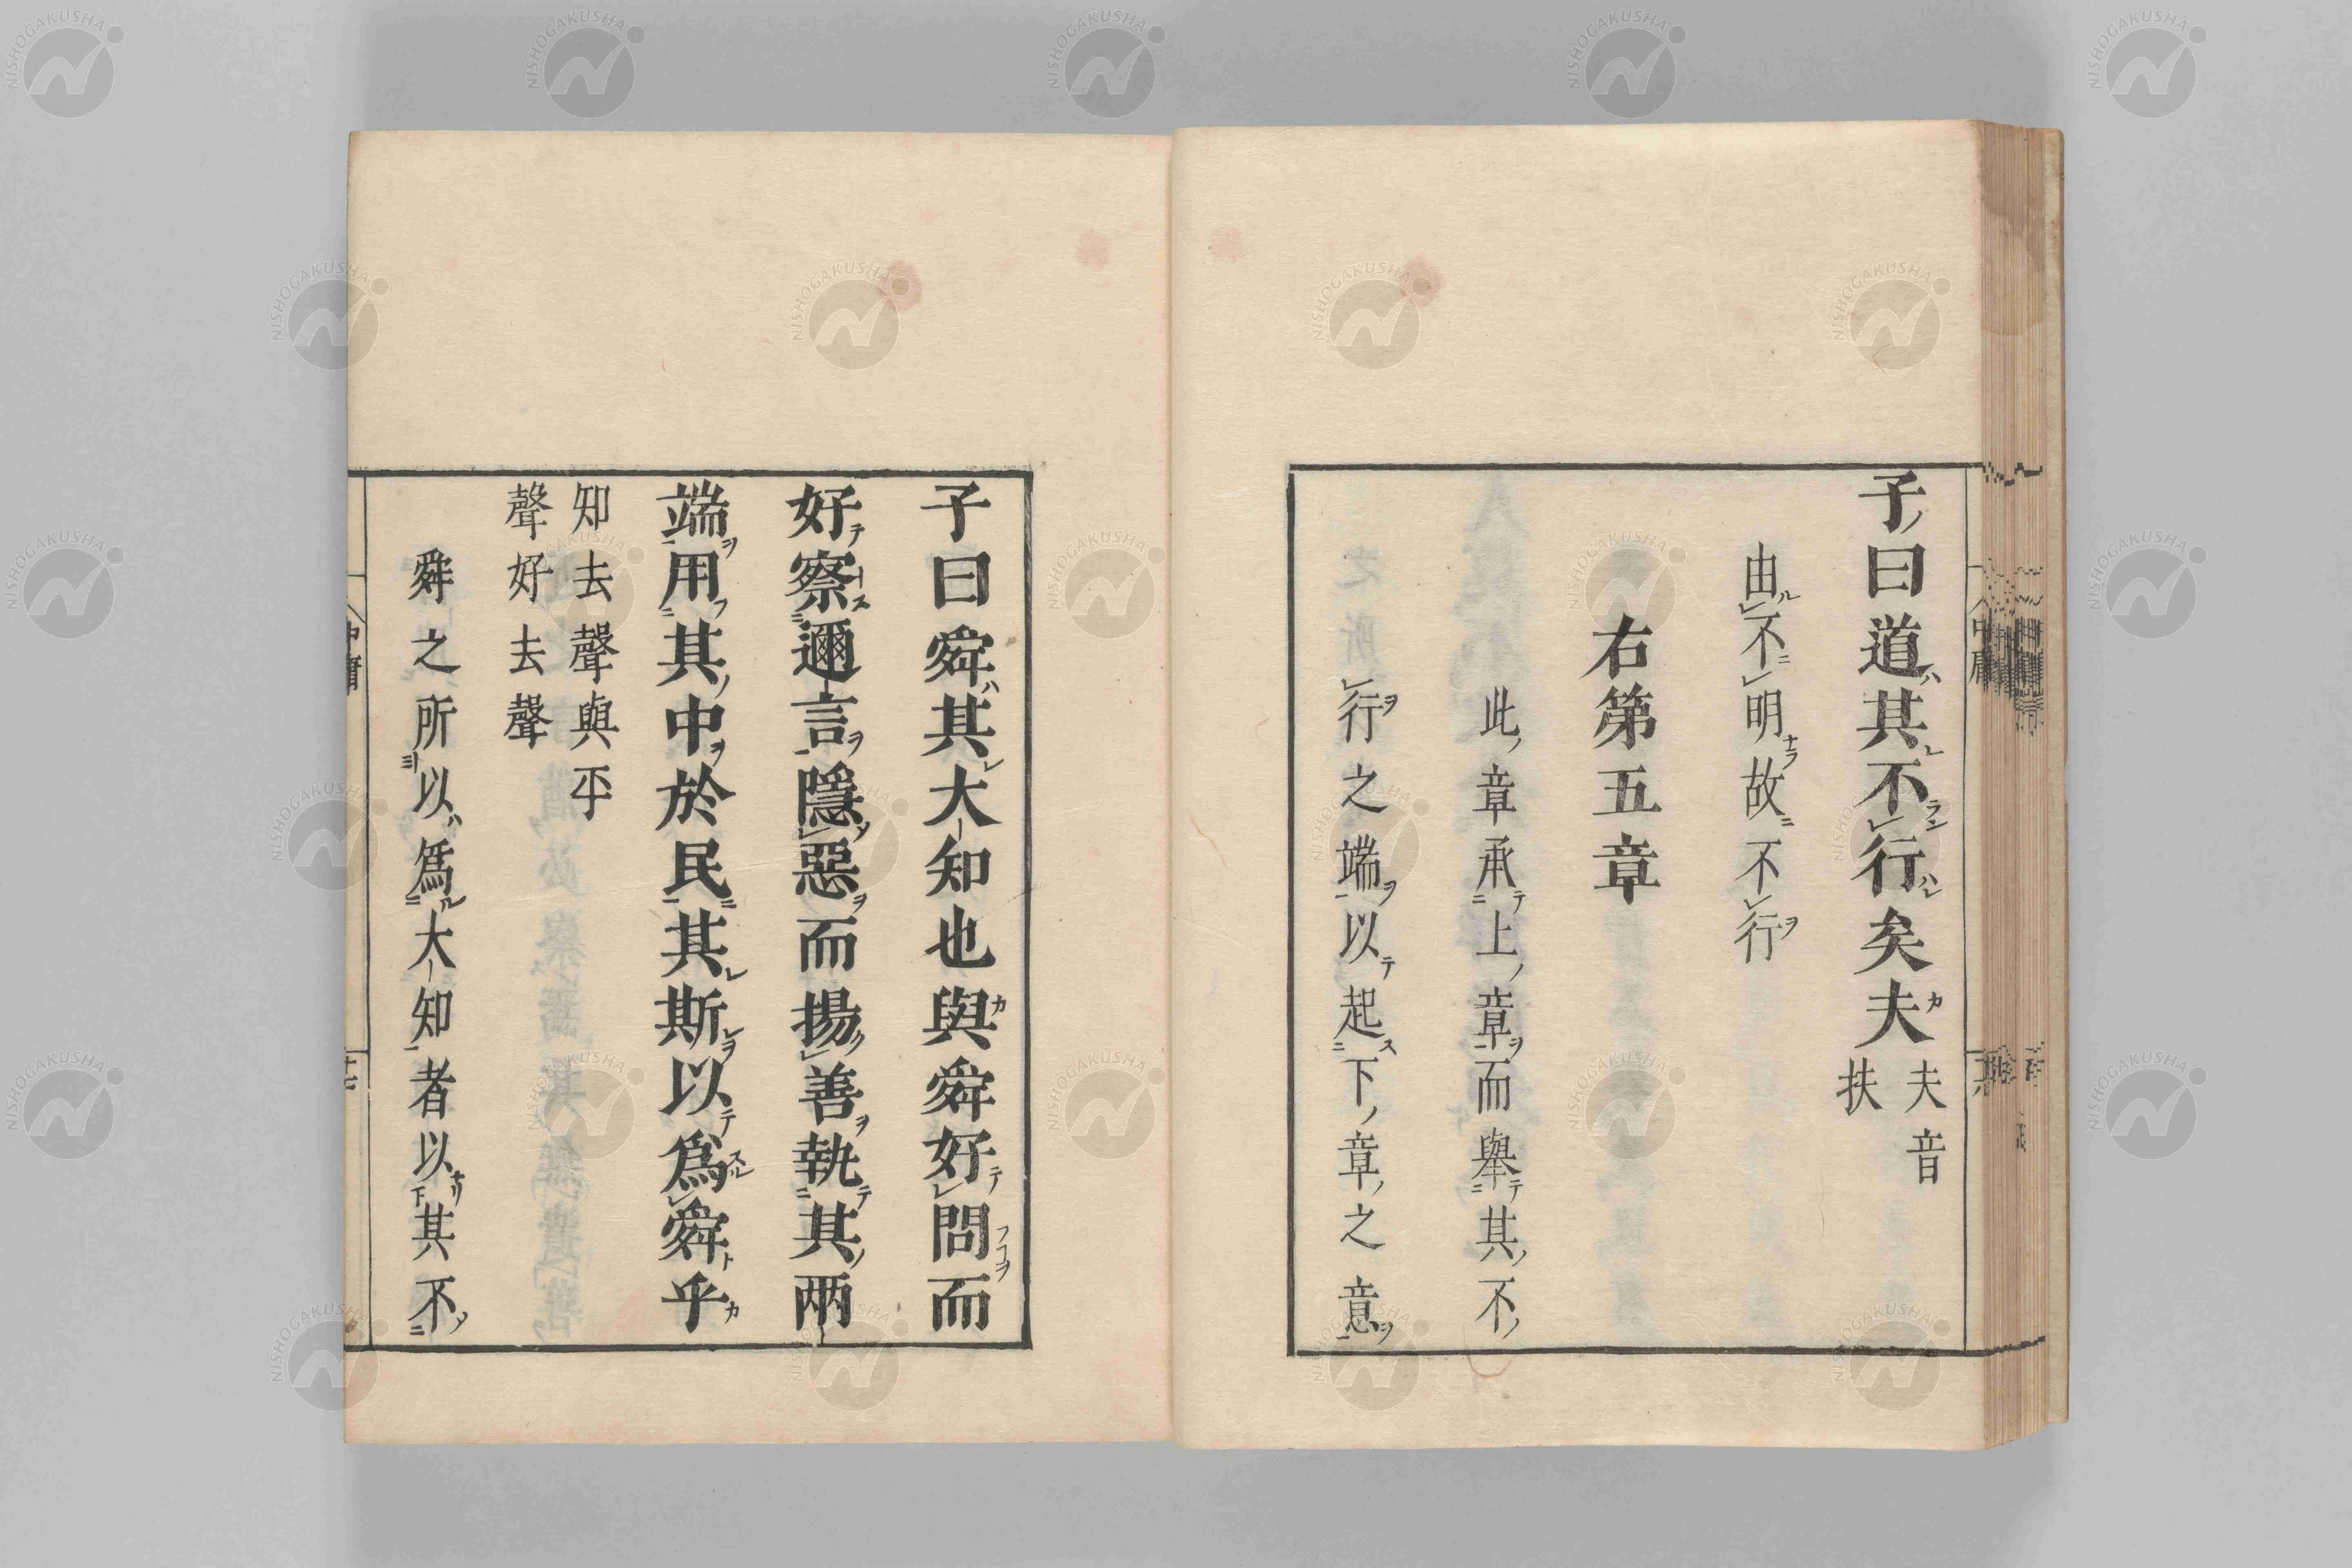 子曰道其不行矣夫
夫音
扶
由不明故不行
右第五章
此章承上章而舉其不
行之端以起下章之意
子曰舜其大知也與舜好問而
好察邇言隱惡而揚善執其兩
端用其中於民其斯以爲舜乎
知去聲與平
聲好去聲
舜之所以爲大知者以其不
中庸
NISHOGAKUSHA